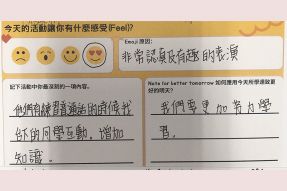 今天的活動讓你有什麼感受(Feel)?
Emoji 原因:
非常認真及有趣的表演
記下活動中你最深刻的一項內容。
他們有練習普通話的時候找
台下的同學互動,增加
知識。
Note for better tomorrow 如何應用今天所學達致更
好的明天?
我們要更加努力學
習。